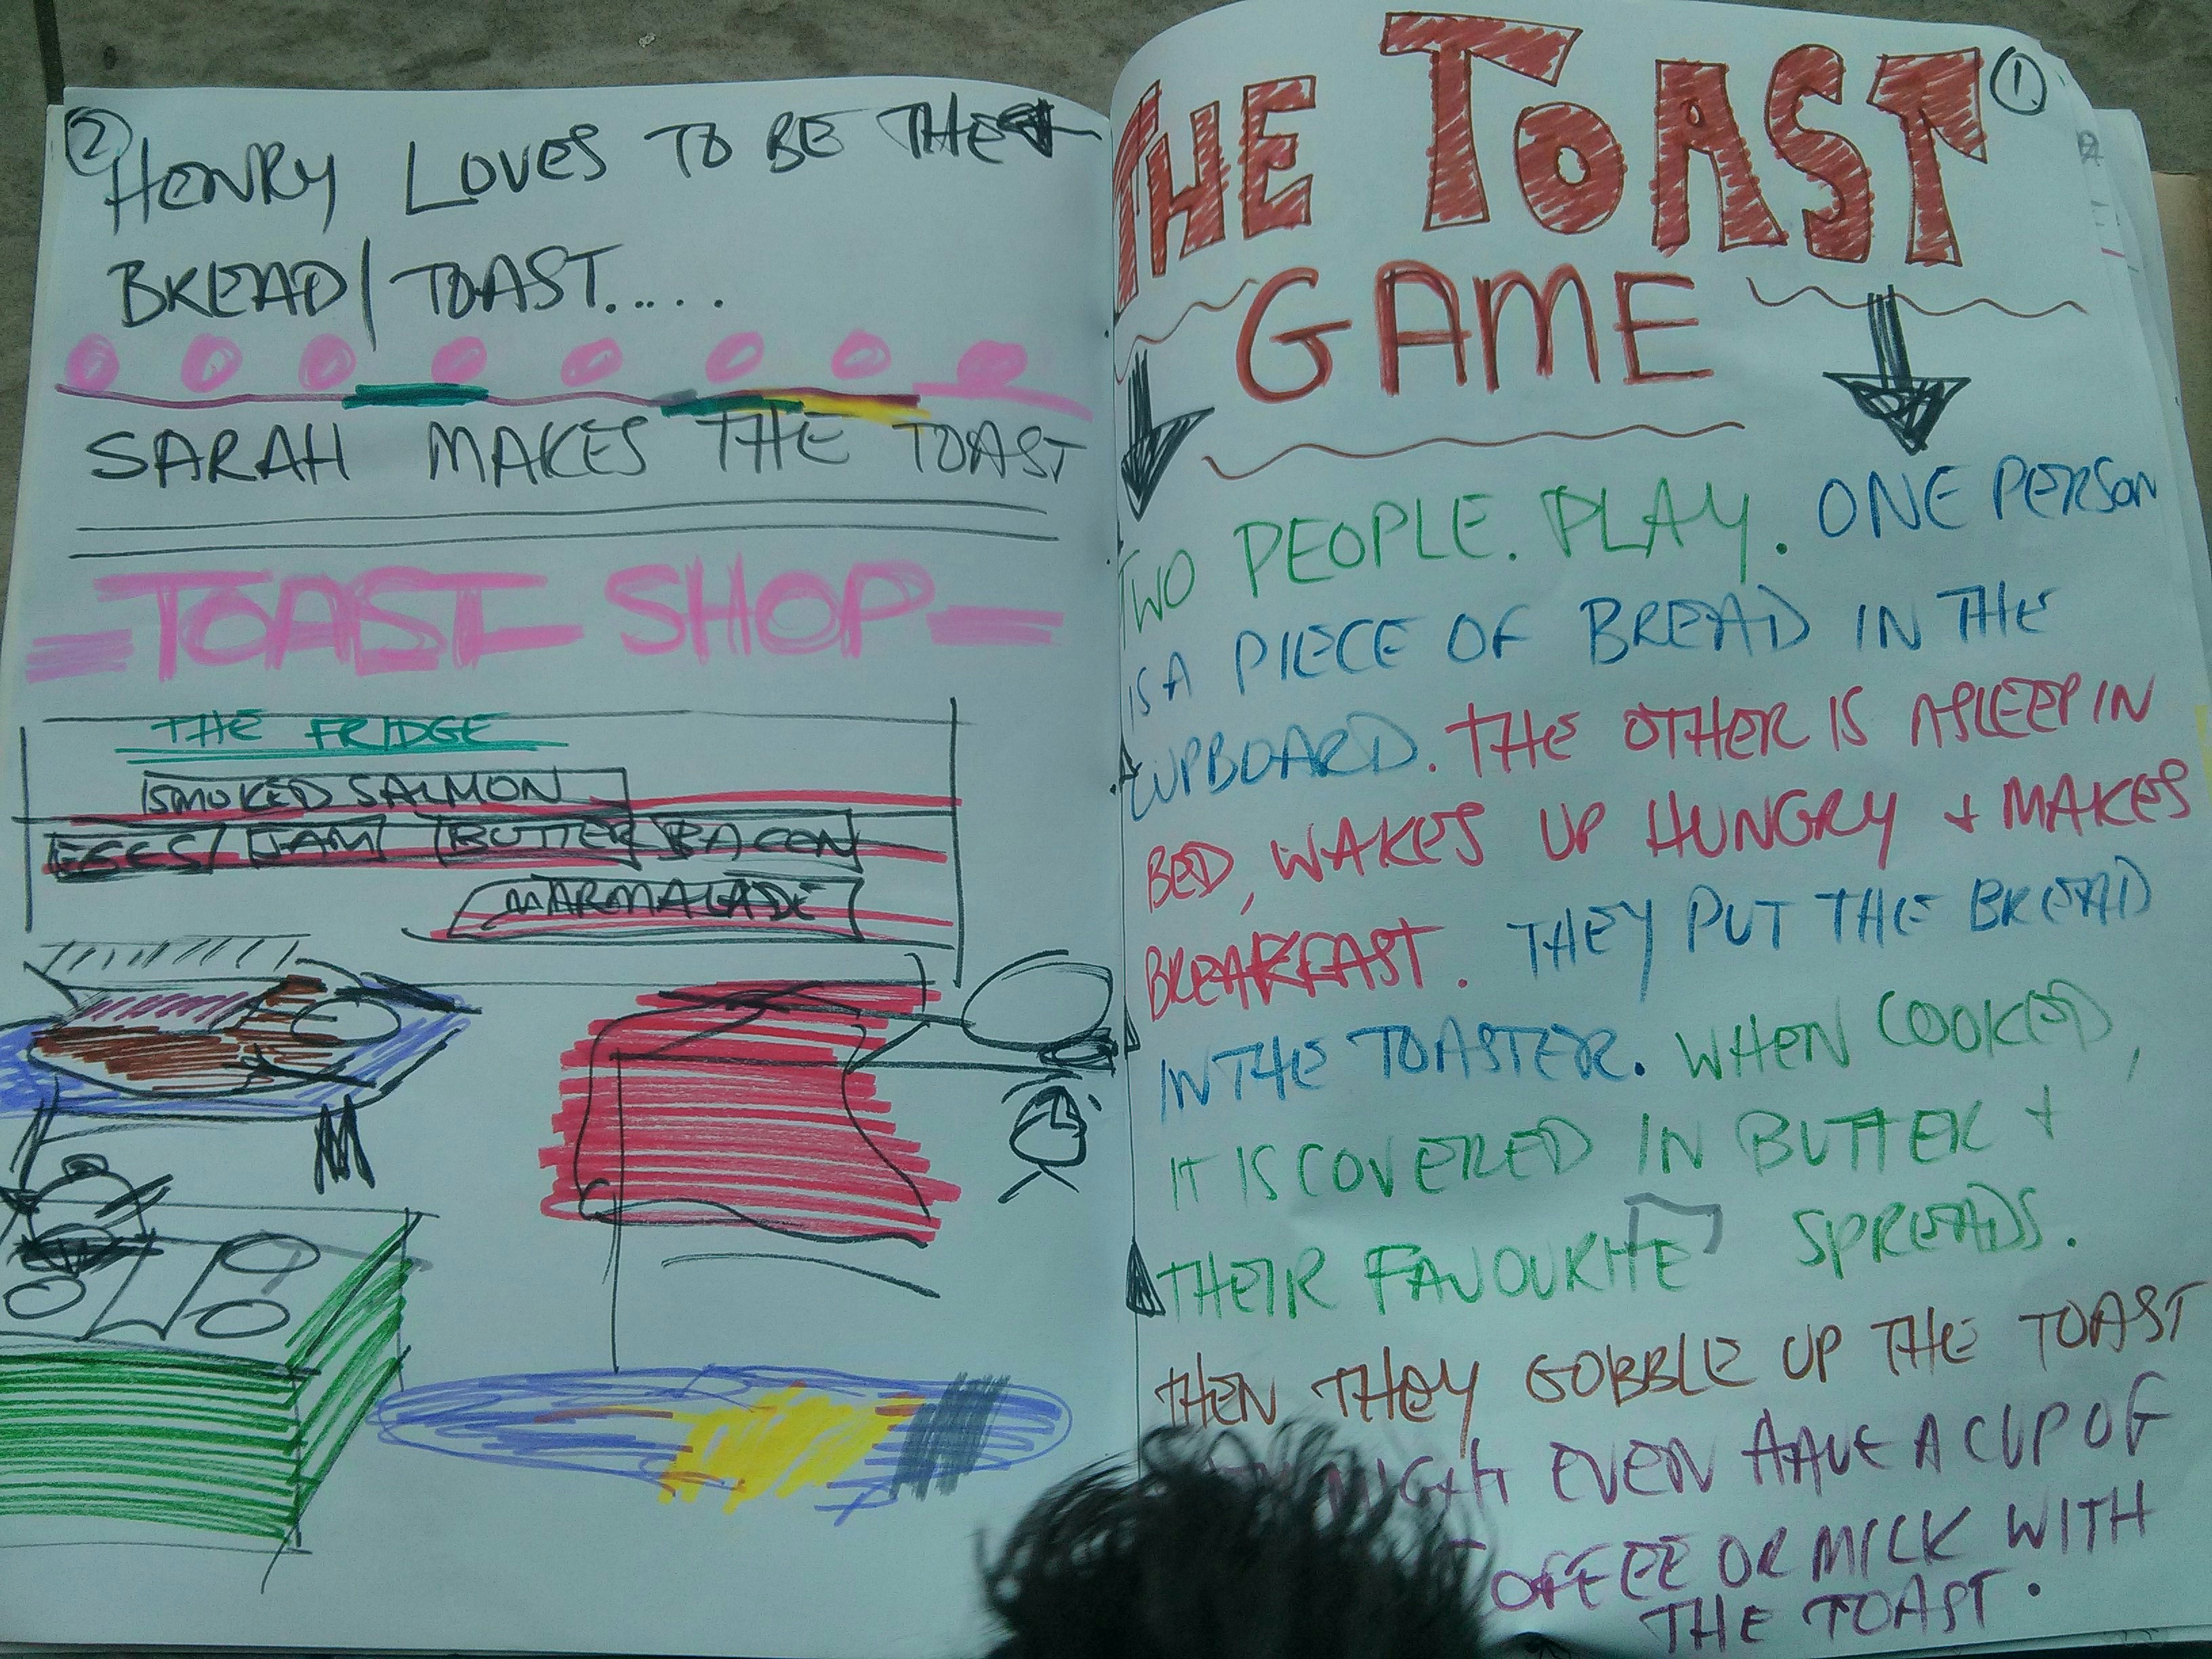 ②
HENRY LOVES TO BE THE
BREAD/TOAST.....
SARAH MAKES THE TOAST
TOAST SHOP
THE FRIDGE
SMOKED SALMON
EGGS JAM BUTTER BACON
MARMALADE
①
THE TOAST
GAME
TWO PEOPLE. PLAY. ONE PERSON
IS A PIECE OF BREAD IN THE
CUPBOARD. THE OTHER IS ASLEEP IN
BED, WAKES UP HUNGRY + MAKES
BREAKFAST. THEY PUT THE BREAD
IN THE TOASTER. WHEN COOKED,
IT IS COVERED IN BUTTER +
THEIR FAVOURITE SPREADS.
THEN THEY GOBBLE UP THE TOAST
MIGHT EVEN HAVE A CUP OF
OFFEE OR MILK WITH
THE TOAST.